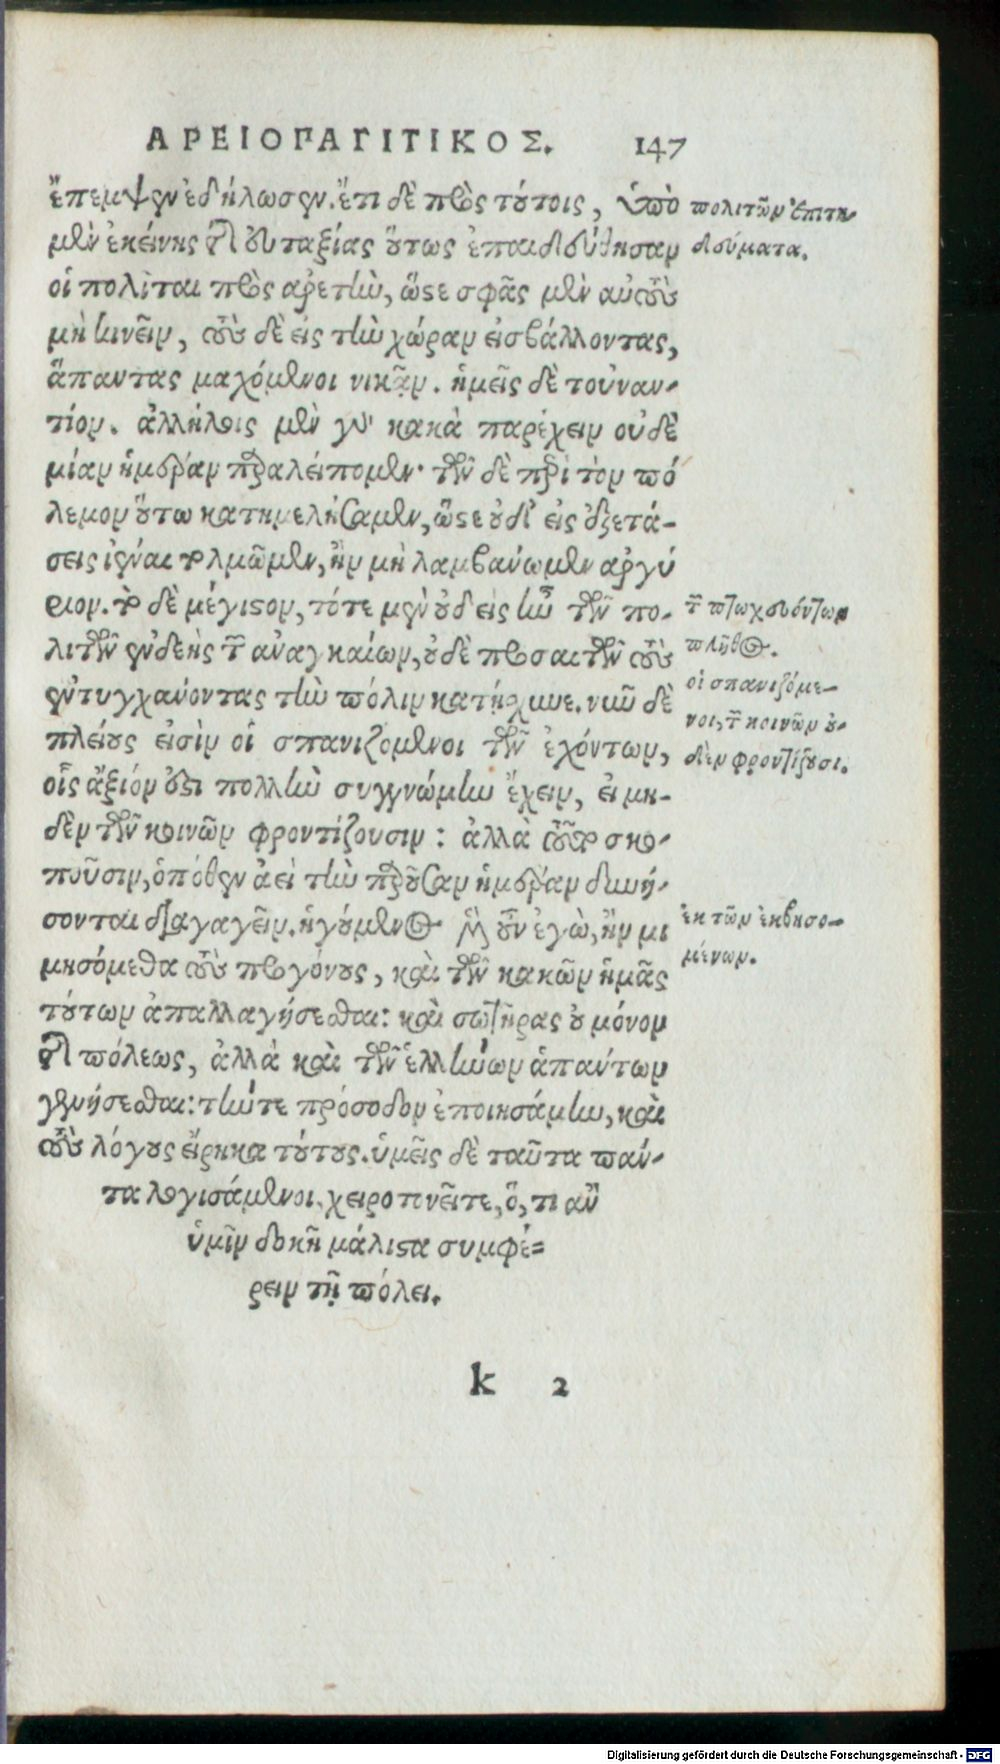 ΑΡΕΙΟΠΑΓΙΤΙΚΟΣ. 147
ἔπεμψεν ἐδήλωσεν. ἔτι δὲ πρὸς τούτοις, ὑπὸ
μὲν ἐκείνης τῆς εὐταξίας οὕτως ἐπαιδεύθησαν
οἱ πολῖται πρὸς ἀρετὴν, ὥστε σφᾶς μὲν αὐτοὺς
μὴ κινεῖν, τοὺς δὲ εἰς τὴν χώραν εἰσβάλλοντας,
ἅπαντας μαχόμενοι νικᾷν. ἡμεῖς δὲ τοὐναν-
τίον. ἀλλήλοις μὲν γὰρ κακὰ παρέχειν οὐδὲ
μίαν ἡμέραν παραλείπομεν· τῶν δὲ περὶ τὸν πό
λεμον οὕτω κατημελήσαμεν, ὥστε οὐδ' εἰς ἐξετά-
σεις ἰέναι τολμῶμεν, ἢν μὴ λαμβάνωμεν ἀργύ
ριον. τὸ δὲ μέγιστον, τότε μὲν οὐδεὶς ἦν τῶν πο-
λιτῶν ἐνδεὴς τῶν ἀναγκαίων, οὐδὲ προσαιτῶν τοὺς
ἐντυγχάνοντας τὴν πόλιν κατῄσχυνε. νῦν δὲ
πλείους εἰσὶν οἱ σπανιζόμενοι τῶν ἐχόντων,
οἷς ἄξιόν ἐστι πολλὴν συγγνώμην ἔχειν, εἰ μη-
δὲν τῶν κοινῶν φροντίζουσιν: ἀλλὰ τοῦτο σκο-
ποῦσιν, ὁπόθεν ἀεὶ τὴν παροῦσαν ἡμέραν δυνή-
σονται διαγαγεῖν. ἡγούμενος μὲν οὖν ἐγὼ, ἢν μι
μησόμεθα τοὺς προγόνους, καὶ τῶν κακῶν ἡμᾶς
τούτων ἀπαλλαγήσεσθαι: καὶ σωτῆρας οὐ μόνον
τῆς πόλεως, ἀλλὰ καὶ τῶν ἑλλήνων ἁπάντων
γενήσεσθαι: τήν τε πρόσοδον ἐποιησάμην, καὶ
τοὺς λόγους εἴρηκα τούτους. ὑμεῖς δὲ ταῦτα πάν-
τα λογισάμενοι, χειροτονεῖτε, ὅ, τι ἂν
ὑμῖν δοκῇ μάλιστα συμφέ=
ρειν τῇ πόλει.
k 2
πολιτῶν ἐπιτη-
δεύματα.
τῶν πτωχευόντων
πλῆθος.
οἱ σπανιζόμε-
νοι, τῶν κοινῶν οὐ-
δὲν φροντίζουσι.
ἐκ τῶν ἐκβησο-
μένων.
Digitalisierung gefördert durch die Deutsche Forschungsgemeinschaft - DFG